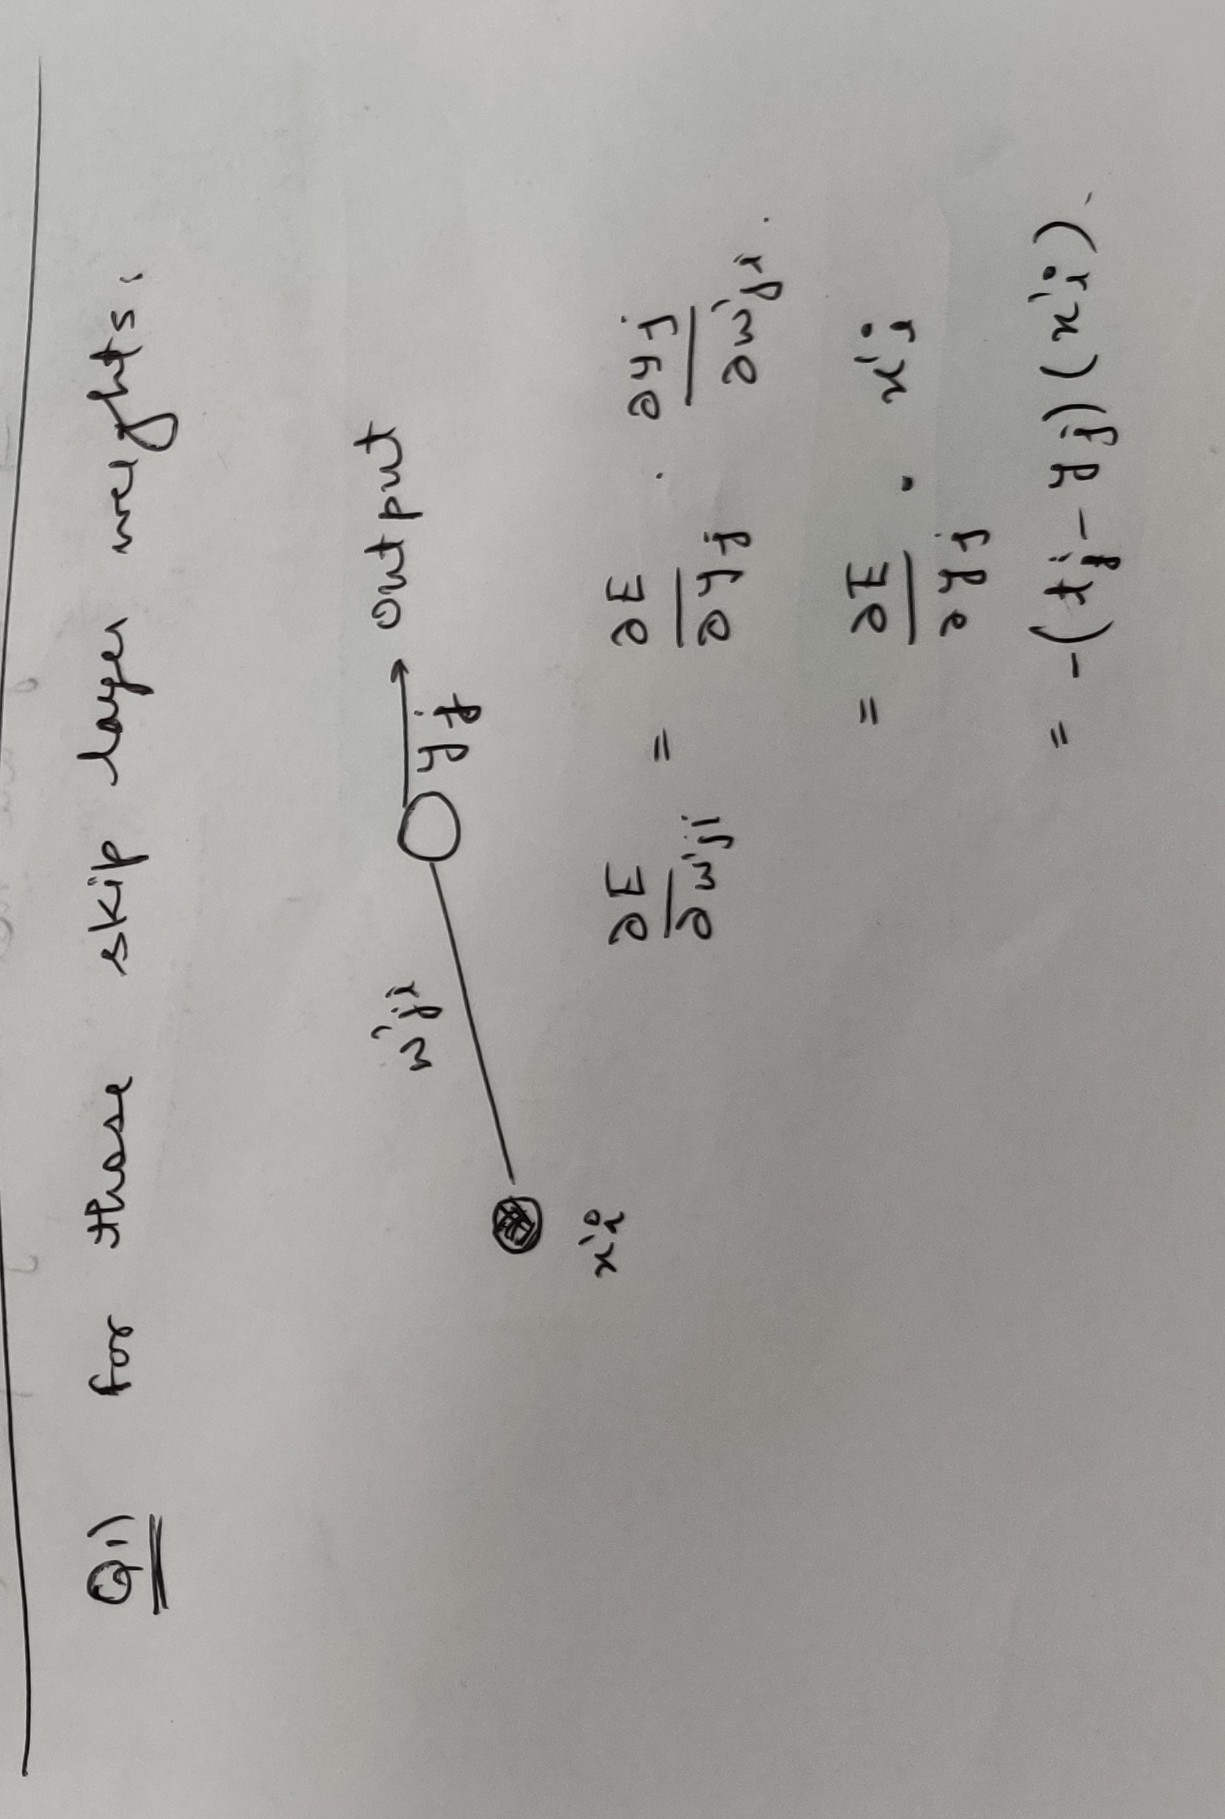 Q1) for those skip layer weights.
w'ji
output
yj
x'i
∂E/∂w'ji = ∂E/∂yj · ∂yj/∂w'ji.
= ∂E/∂yj . x'i
= -(tj - yj)(x'i).